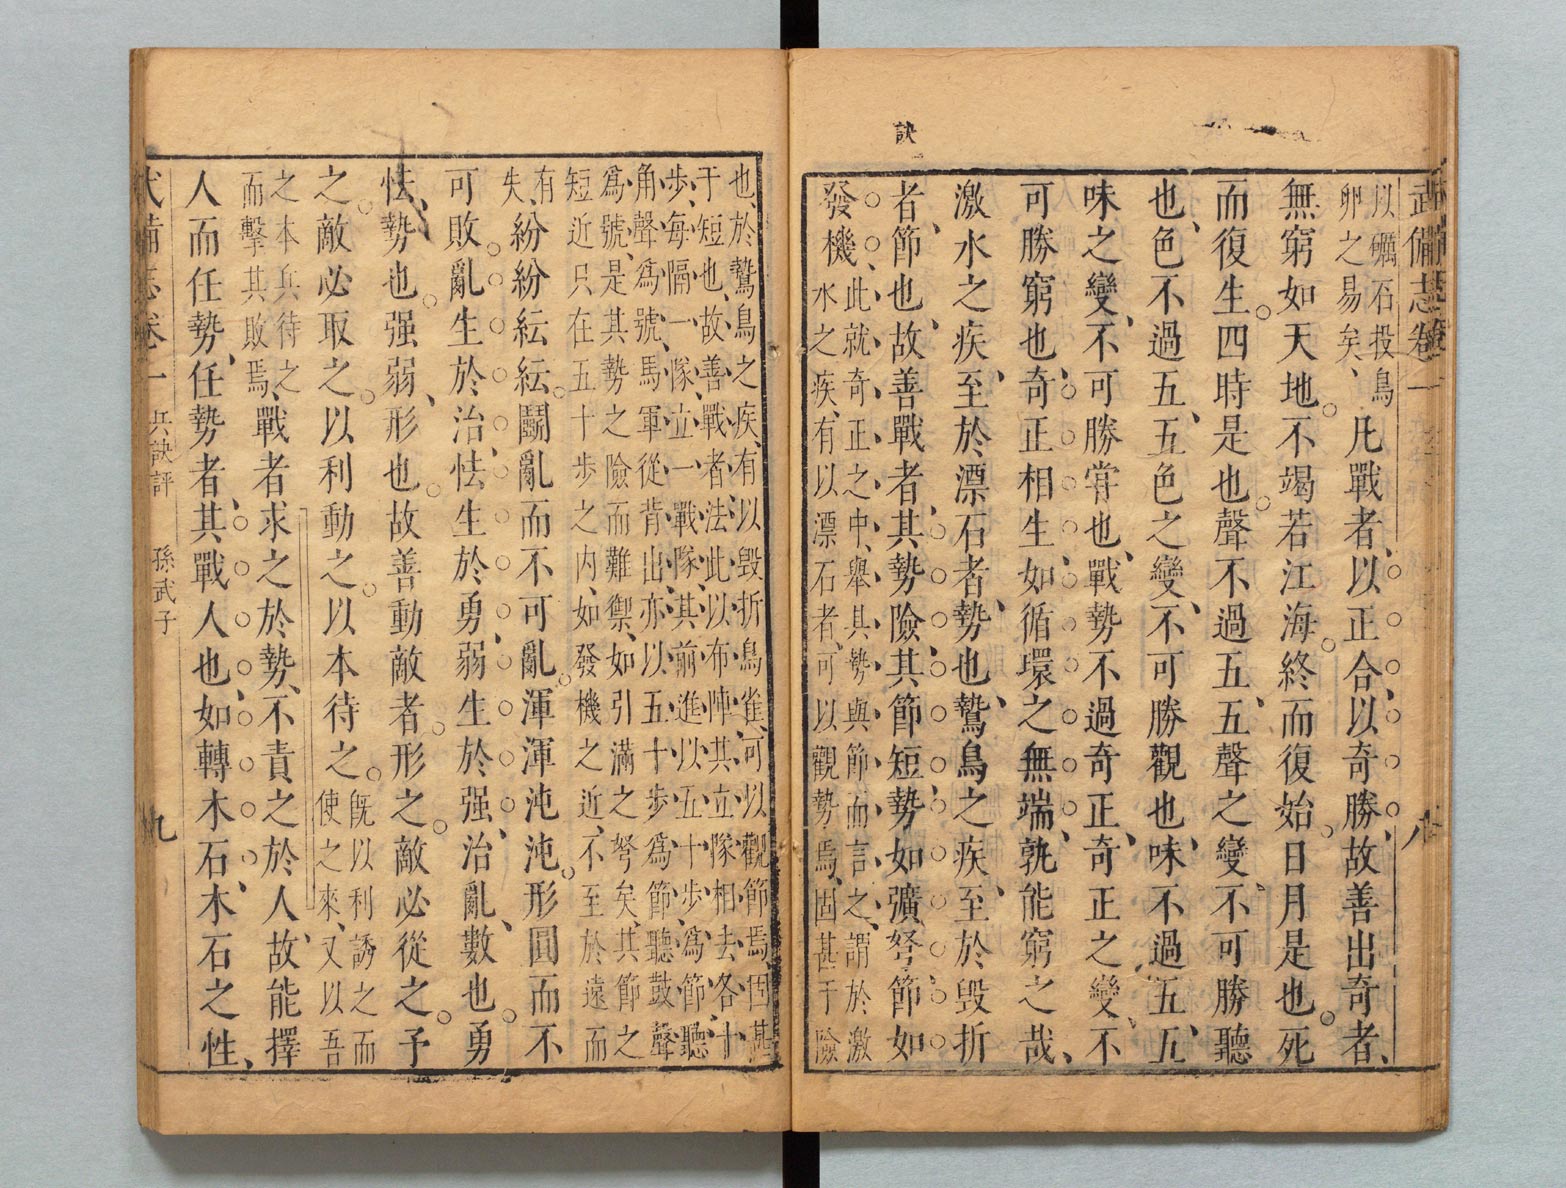 武備志卷一 八
訣
以礪石投鳥
卵之易矣、
凡戰者、以正合、以奇勝、故善出奇者、
無窮如天地。不竭若江海。終而復始。日月是也。死
而復生。四時是也。聲不過五、五聲之變、不可勝聽
也、色不過五、五色之變、不可勝觀也、味不過五、五
味之變、不可勝嘗也、戰勢不過奇正、奇正之變、不
可勝窮也、奇正相生、如循環之無端、孰能窮之哉、
激水之疾、至於漂石者、勢也、鷙鳥之疾、至於毀折
者、節也、故善戰者、其勢險、其節短、勢如彍弩、節如
發機
此就奇正之中、舉其勢與節而言之、謂於激
水之疾、有以漂石者、可以觀勢焉、固甚于險
也、於鷙鳥之疾、有以毀折鳥雀、可以觀節焉、固甚
于短也、故善戰者、法此以布陣、其立隊相去各十
步、每隔一隊、立一戰隊、其前進以五十步、爲節、聽
角聲爲號、馬軍從背出、亦以五十步爲節、聽鼓聲
爲號、是其勢之險而難禦、如引滿之弩矣、其節之
短近只在五十步之内、如發機之近、不至於遠而
有
失、
紛紛紜紜。鬭亂而不可亂。渾渾沌沌。形圓而不
可敗。亂生於治、怯生於勇、弱生於强、治亂、數也。勇
怯、勢也。强弱、形也。故善動敵者。形之。敵必從之。予
之。敵必取之。以利動之。以本待之。
既以利誘之而
使之來、又以吾
之本兵待之
而擊其敗焉、
戰者求之於勢、不責之於人、故能擇
人而任勢、任勢者、其戰人也、如轉木石、木石之性、
武備志卷一 兵訣評 孫武子 九